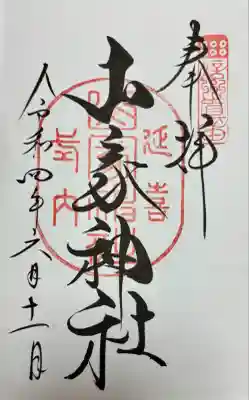 奉拝
延喜
山家神社
式内
令和四年六月十一日